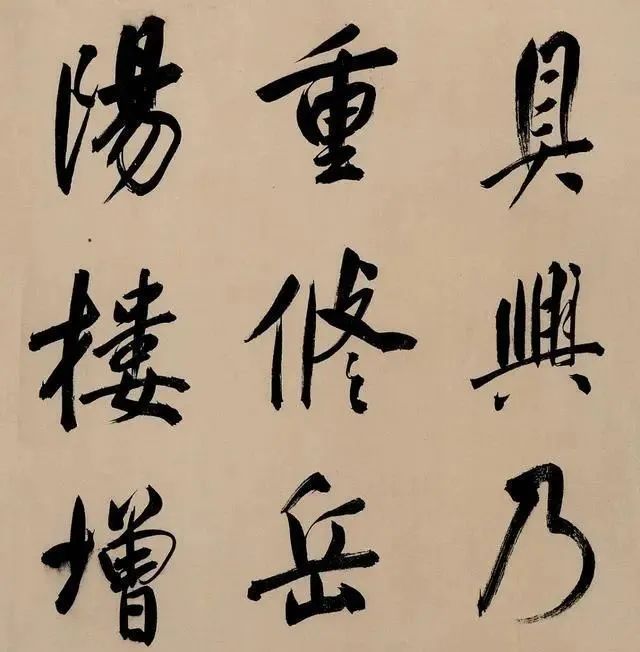 具興乃
重修岳
陽樓增